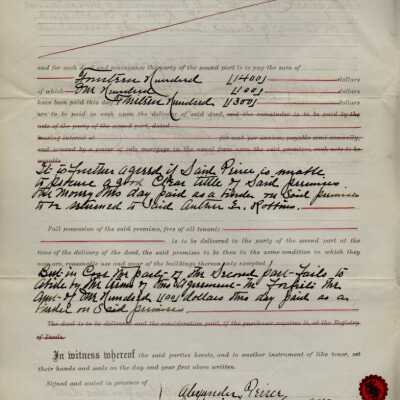 and for such deed and conveyance the party of the second part is to pay the sum of
Fourteen Hundred (1400) dollars
of which One Hundred (100) dollars
have been paid this day Thirteen Hundred (1300) dollars
are to be paid in cash upon the delivery of said deed, and the remainder is to be paid by the
note of the party of the second part, dated
bearing interest at per cent per annum, payable semi-annually,
and secured by a power of sale mortgage in the usual form upon the said premises, such note to be
It is further agreed if Said Peirce is unable
to procure a good clear title of Said premises
the money this day paid as a binder on Said premises
to be returned to Said Author E. Robbins.
Full possession of the said premises, free of all tenants
is to be delivered to the party of the second part at the
time of the delivery of the deed, the said premises to be then in the same condition in which they
now are, reasonable use and wear of the buildings thereon only excepted.
But in Case the party of the Second part fails to
abide by the terms of this agreement he forfeits the
Amt of One Hundred (100) dollars this day paid as a
binder on Said premises
The deed is to be delivered and the consideration paid, if the purchaser requires it, at the Registry
of Deeds
In witness whereof the said parties hereto, and to another instrument of like tenor, set
their hands and seals on the day and year first above written.
Signed and sealed in presence of
Alexander Peirce